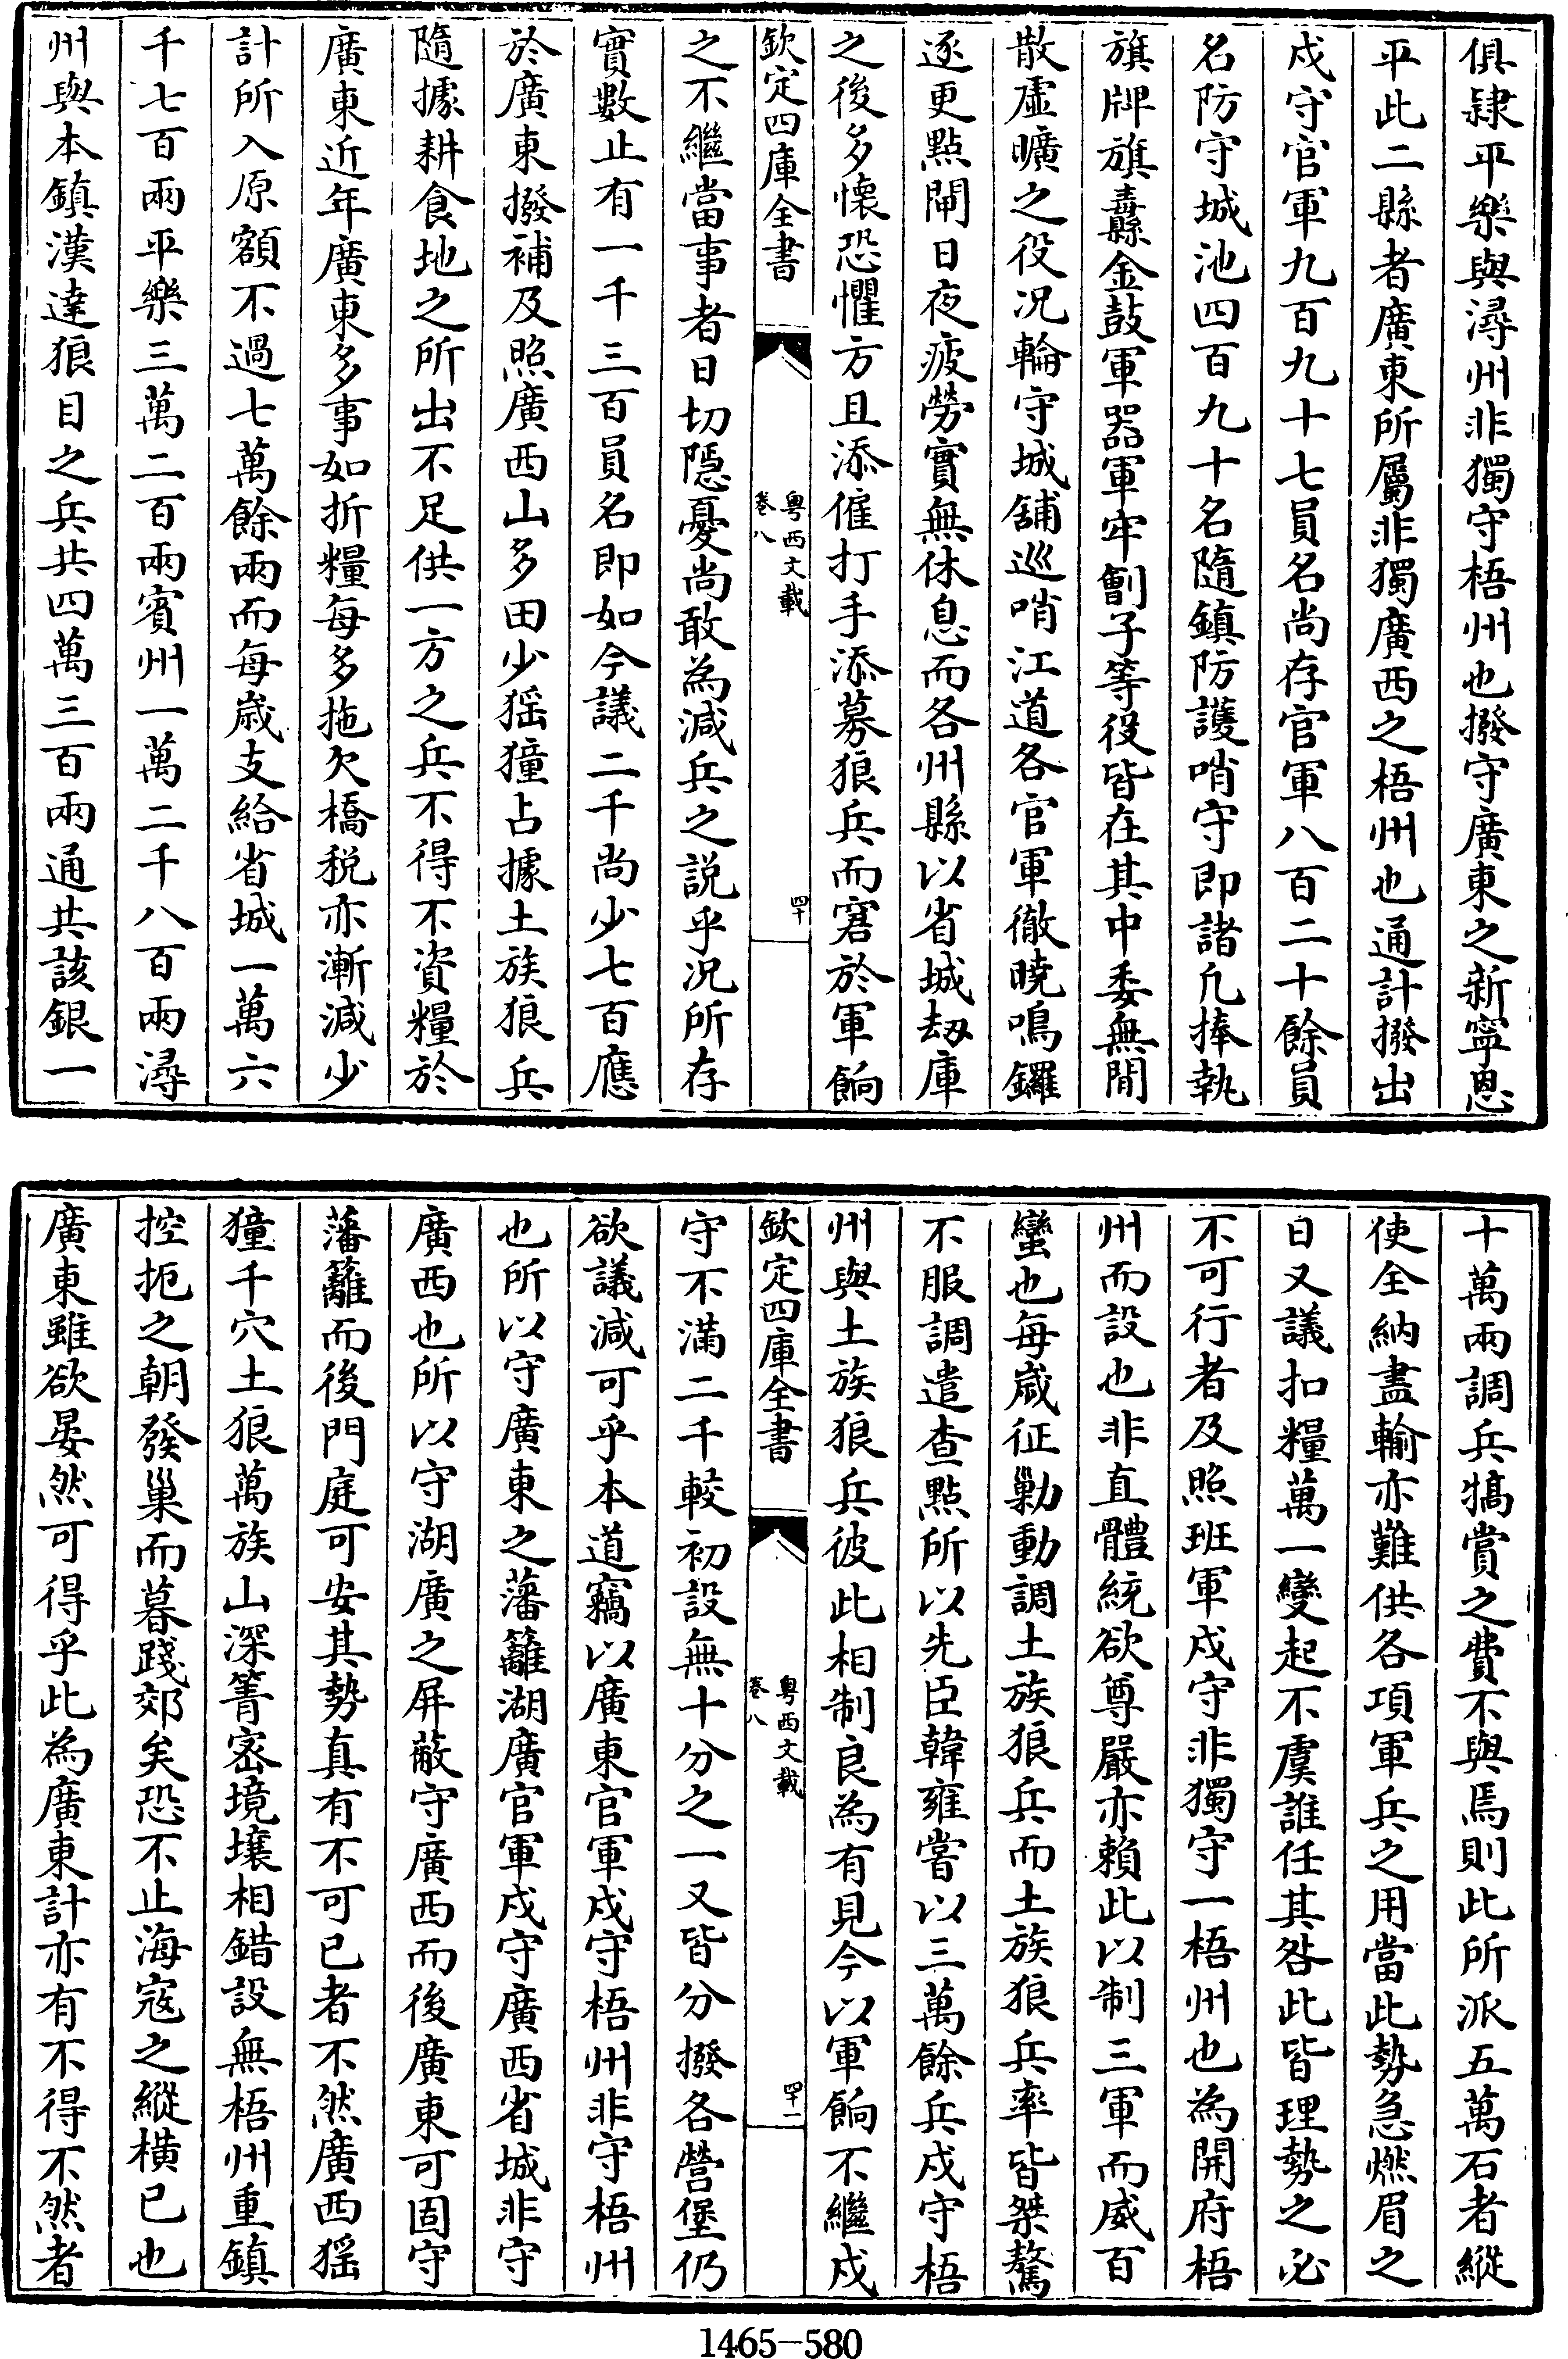 俱隷平樂與潯州非獨守梧州也撥守廣東之新寧恩
平此二縣者廣東所屬非獨廣西之梧州也通計撥出
戍守官軍九百九十七員名尚存官軍八百二十餘員
名防守城池四百九十名隨鎮防護哨守即諸凢捧執
旗牌旗纛金鼓軍器軍牢劊子等役皆在其中委無閒
散虛曠之役况輪守城舖巡哨江道各官軍徹曉鳴鑼
逐更點閘日夜疲勞實無休息而各州縣以省城刼庫
之後多懷恐懼方且添僱打手添募狼兵而窘於軍餉
欽定四庫全書
粤西文載
卷八
四十
之不繼當事者日切隱憂尚敢為減兵之説乎况所存
實數止有一千三百員名即如今議二千尚少七百應
於廣東撥補及照廣西山多田少猺獞占據土族狼兵
隨據耕食地之所出不足供一方之兵不得不資糧於
廣東近年廣東多事如折糧每多拖欠橋税亦漸減少
計所入原額不過七萬餘兩而每歲支給省城一萬六
千七百兩平樂三萬二百兩賓州一萬二千八百兩潯
州與本鎮漢達狼目之兵共四萬三百兩通共該銀一
十萬兩調兵犒賞之費不與焉則此所派五萬石者縱
使全納盡輸亦難供各項軍兵之用當此勢急燃眉之
日又議扣糧萬一變起不虞誰任其咎此皆理勢之必
不可行者及照班軍戍守非獨守一梧州也為開府梧
州而設也非直體統欲尊嚴亦賴此以制三軍而威百
蠻也每歲征勦動調土族狼兵而土族狼兵率皆桀驁
不服調遣查點所以先臣韓雍嘗以三萬餘兵戍守梧
州與土族狼兵彼此相制良為有見今以軍餉不繼戍
欽定四庫全書
粤西文載
卷八
四十一
守不滿二千較初設無十分之一又皆分撥各營堡仍
欲議減可乎本道竊以廣東官軍戍守梧州非守梧州
也所以守廣東之藩籬湖廣官軍戍守廣西省城非守
廣西也所以守湖廣之屏蔽守廣西而後廣東可固守
藩籬而後門庭可安其勢真有不可已者不然廣西猺
獞千穴土狼萬族山深箐密境壤相錯設無梧州重鎮
控扼之朝發巢而暮踐郊矣恐不止海寇之縱橫已也
廣東雖欲晏然可得乎此為廣東計亦有不得不然者
1465-580